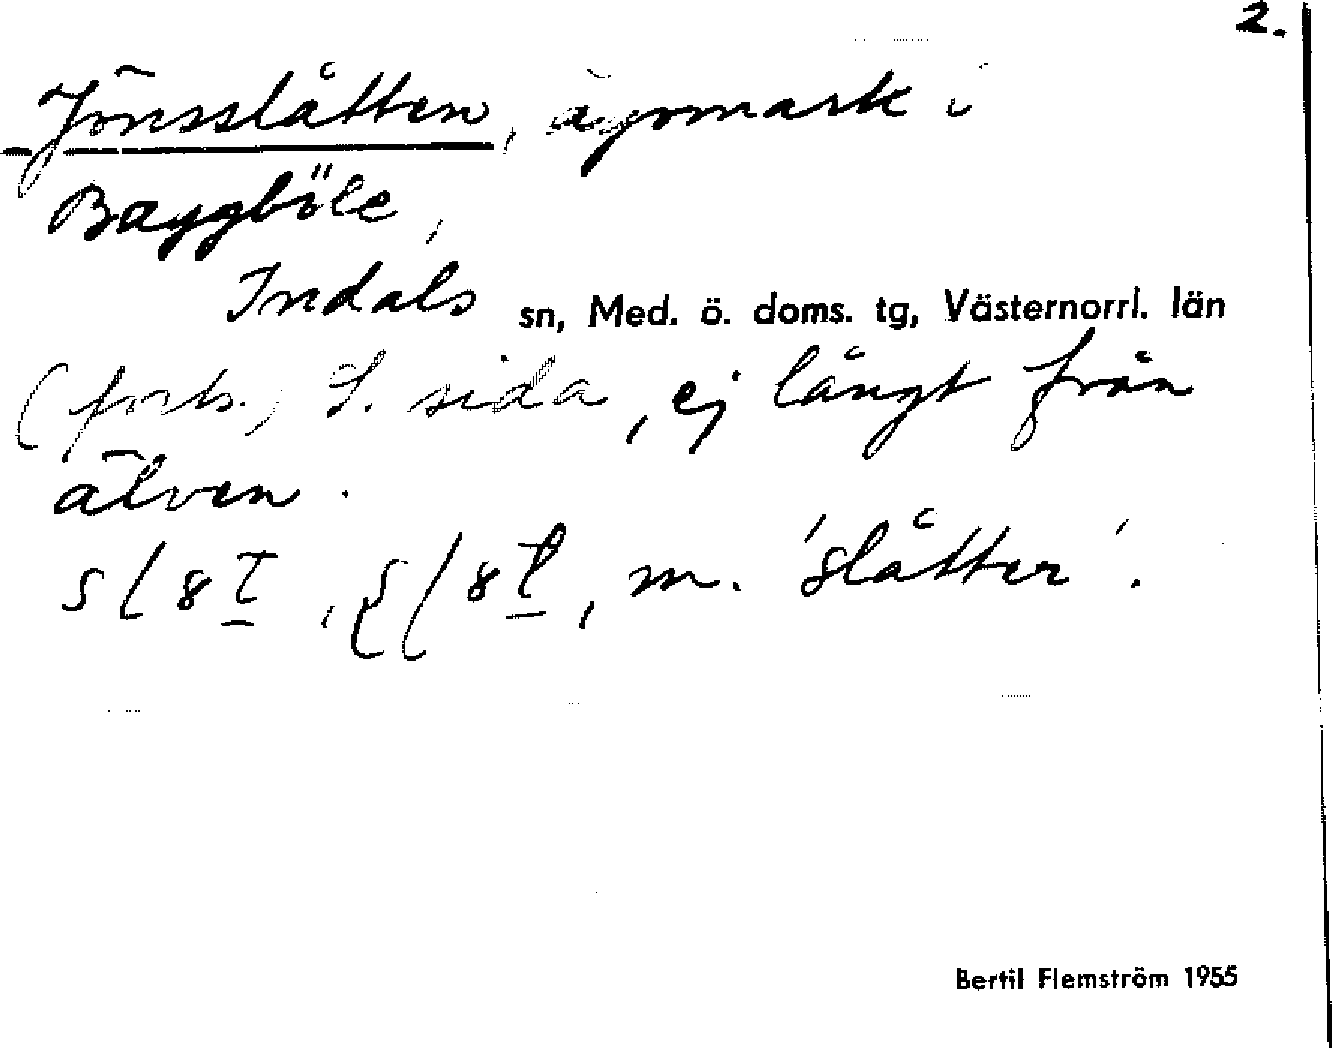 2.
Jönsslåtten, ägomark i
Baggböle,
Indals sn, Med. ö. doms. tg, Västernorrl. län
(forts.) S. sida, ej långt från
älven.
m. 'slåtter'.
Bertil Flemström 1955